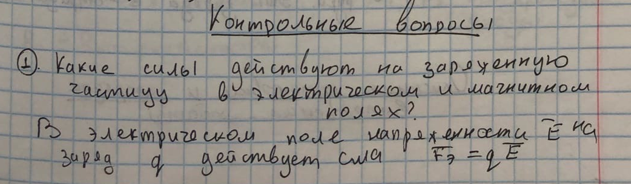 Контрольные вопросы
① Какие силы действуют на заряженную
частицу в электрическом и магнитном
полях?
В электрическом поле напряженности E̅ на
заряд q действует сила F̅э = q E̅